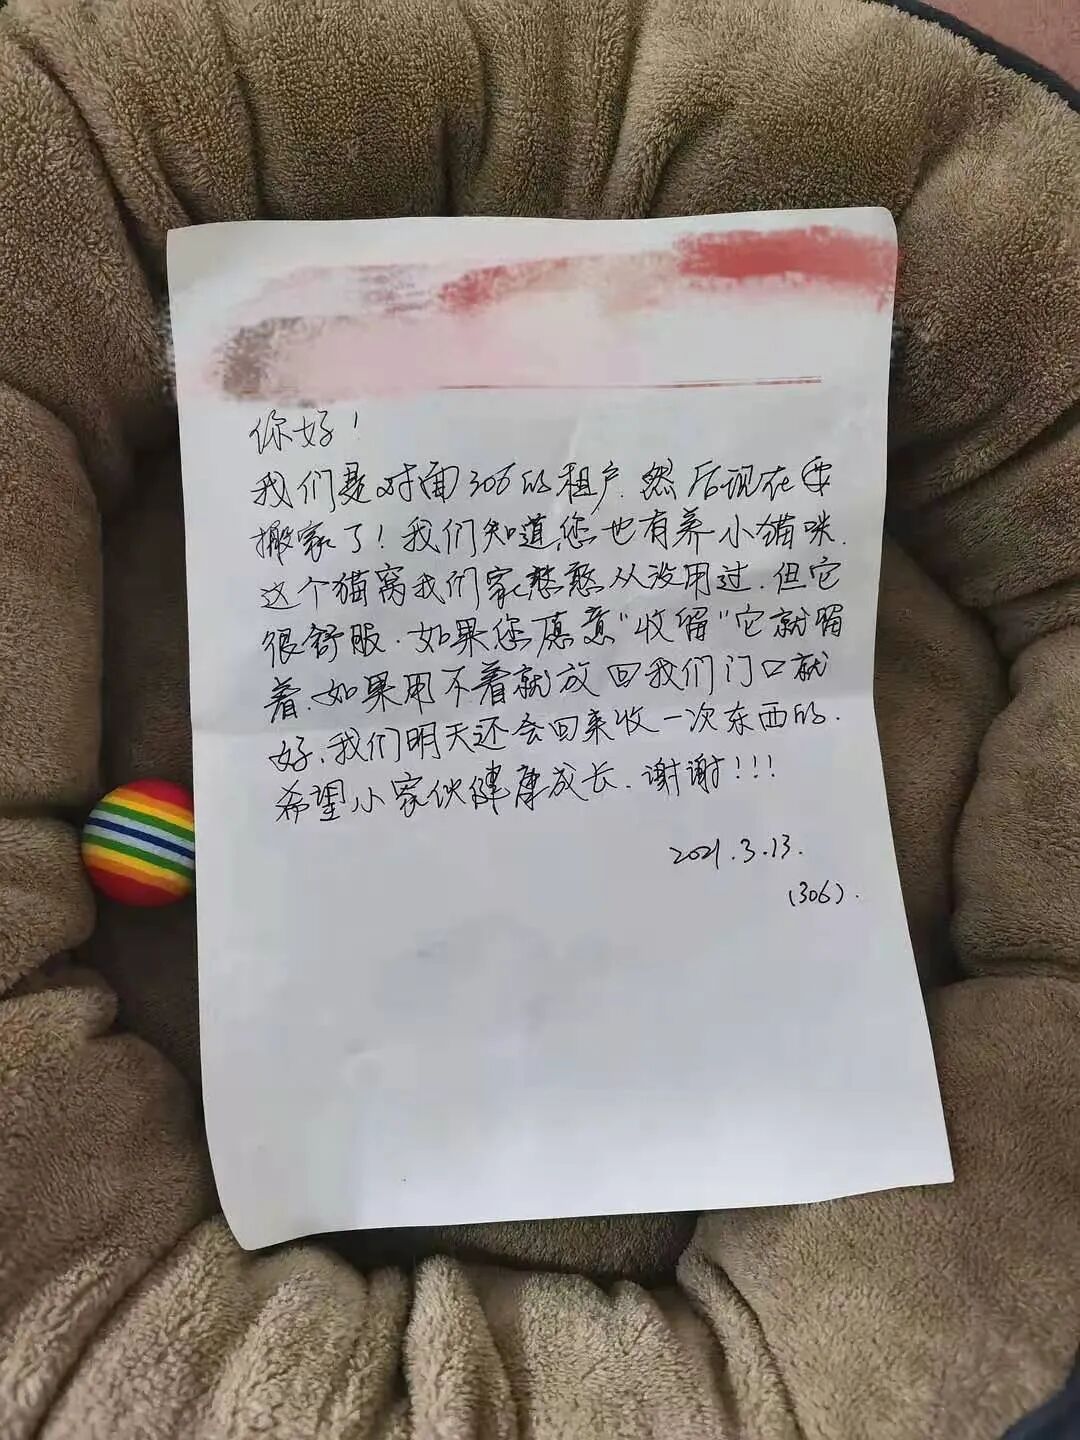 你好！
我们是对面306的租户.然后现在要
搬家了！我们知道您也有养小猫咪.
这个猫窝我们家憨憨从没用过.但它
很舒服.如果您愿意“收留”它就留
着.如果用不着就放回我们门口就
好、我们明天还会回来收一次东西的.
希望小家伙健康成长.谢谢！！！
2021.3.13.
(306).